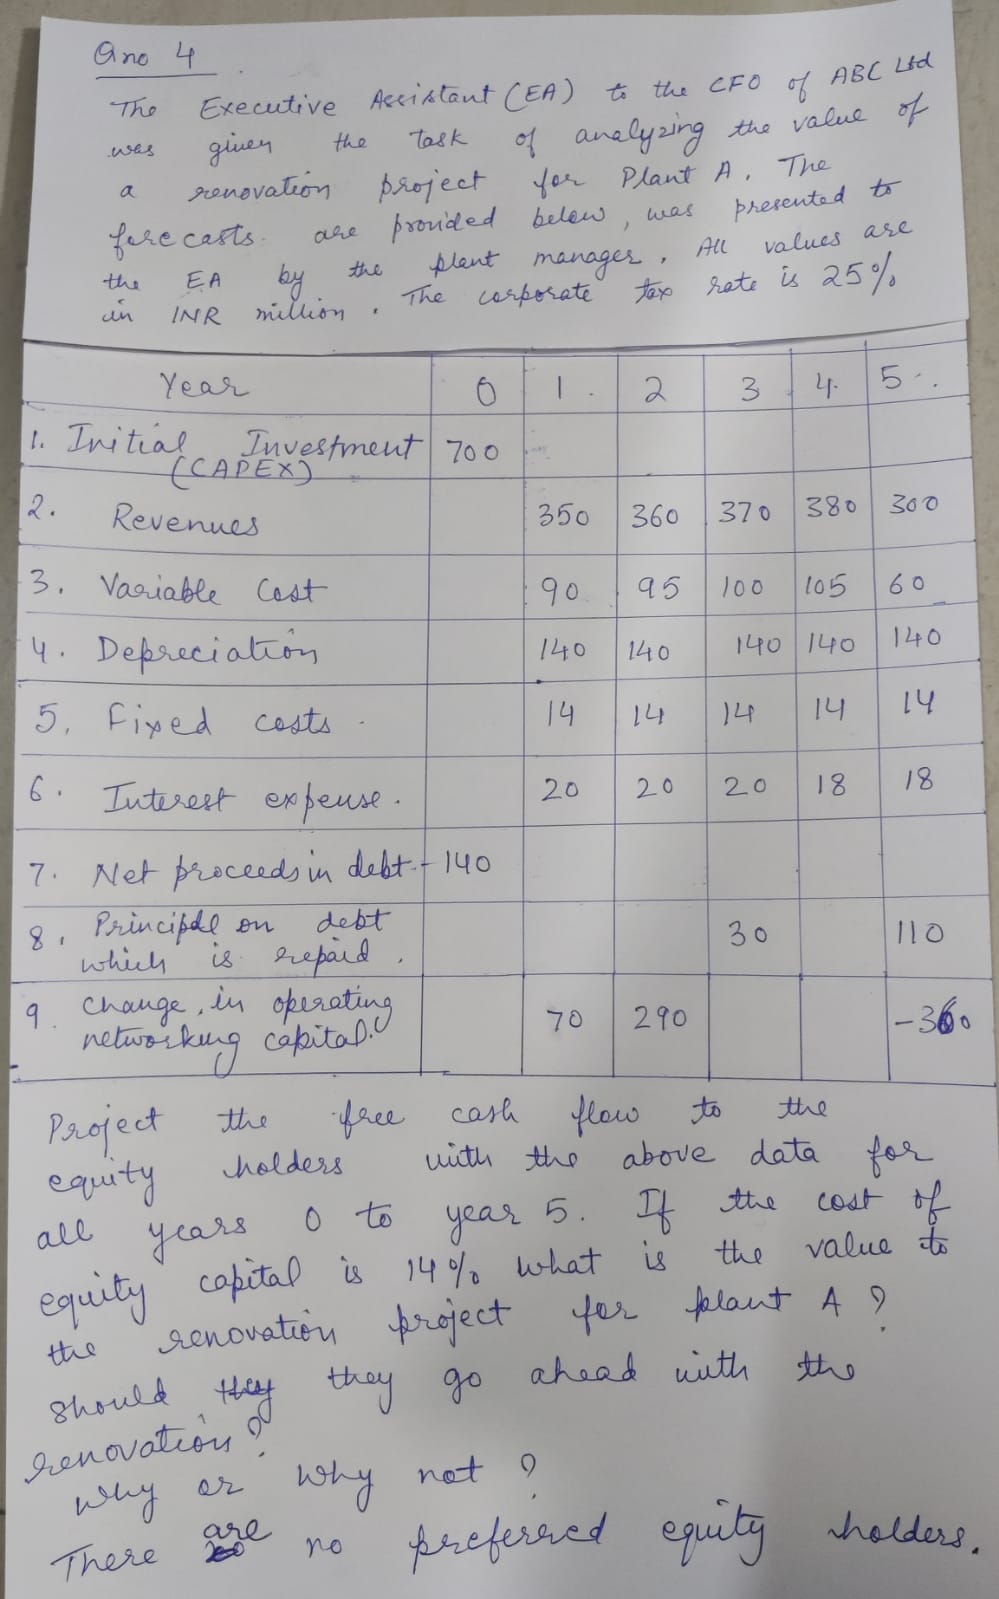 Qno 4
The Executive Assistant (EA) to the CFO of ABC Ltd
was given the task of analyzing the value of
a renovation project for Plant A. The
forecasts are provided below, was presented to
the EA by the plant manager. All values are
in INR million. The corporate tax rate is 25%
Year 0 1. 2 3 4. 5.
1. Initial Investment 700
(CAPEX)
2. Revenues 350 360 370 380 300
3. Variable Cost 90 95 100 105 60
4. Depreciation 140 140 140 140 140
5. Fixed costs 14 14 14 14 14
6. Interest expense. 20 20 20 18 18
7. Net proceeds in debt. 140
8. Principal on debt 30 110
which is repaid.
9. Change in operating 70 290 -360
networking capital.
Project the free cash flow to the
equity holders with the above data for
all years 0 to year 5. If the cost of
equity capital is 14% what is the value to
the renovation project for plant A?
Should they go ahead with the
renovation?
Why or why not?
There are no preferred equity holders.